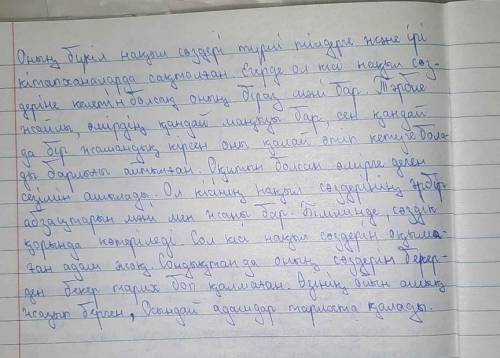 Оның бүкіл нақыл сөздері түрлі тілдерге және ірі
кітапханаларда сақталған. Егерде ол кісі нақыл сөз-
деріне келетін болсақ оның біраз мәні бар. Тәрбие
жайлы, өмірдің қандай маңызы бар, сен қандай
да бір жамандық көрсең оны қалай өтіп кетуге бола-
ды барлығы айтылған. Оқитын болсаң өмірге деген
сезімің ашылады. Ол кісінің нақыл сөздерінің әрбір
абзацтарын мәні мен жаны бар. Білімінде, сөздік
қорында көтеріледі. Сол кісі нақыл сөздерін оқыма-
ған адам жоқ. Сондықтан да оның сөздерін бекер-
ден бекер тарих боп қалмаған. Өзінің ойын ашық
жазып берген, Осындай адамдар тарихта қалады.